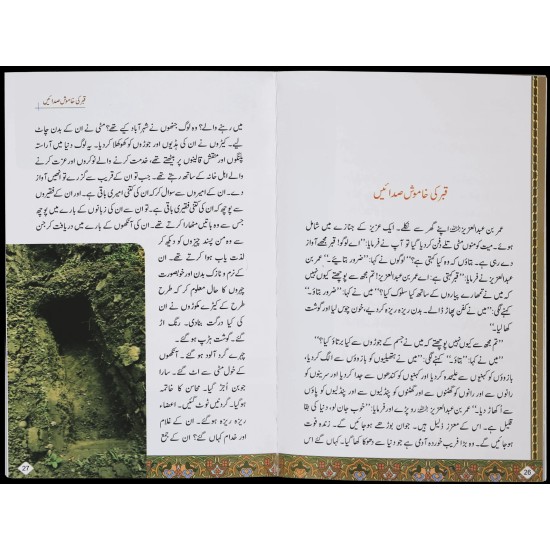 قبر کی خاموش صدائیں
عمر بن عبدالعزیز رحمہ اللہ اپنے گھر سے نکلے۔ ایک عزیز کے جنازے میں شامل
ہوئے۔ میت کو منوں مٹی تلے دفن کر دیا گیا تو آپ نے فرمایا: ''اے لوگو! قبر مجھے آواز
دے رہی ہے۔ بتاؤں کہ وہ کیا کہتی ہے؟'' لوگوں نے کہا: ''ضرور بتایئے۔'' عمر بن
عبدالعزیز نے فرمایا: ''قبر کہتی ہے: اے عمر بن عبدالعزیز! تم مجھ سے پوچھتے کیوں نہیں
کہ میں نے تمھارے پیاروں کے ساتھ کیا سلوک کیا؟'' میں نے کہا: ''ضرور بتاؤ۔''
کہنے لگی: ''میں نے کفن پھاڑ ڈالے۔ بدن ریزہ ریزہ کر دیے، خون چوس لیا اور گوشت
کھا لیا۔''
''تم مجھ سے کیوں نہیں پوچھتے کہ میں نے جسم کے جوڑوں سے کیا برتاؤ کیا؟''
''میں نے کہا: ''بتاؤ۔'' کہنے لگی: ''میں نے ہتھیلیوں کو بازوؤں سے الگ کر دیا،
بازوؤں کو کہنیوں سے اور کہنیوں کو کندھوں سے جدا کر دیا اور سرینوں کو
رانوں سے اور رانوں کو گھٹنوں سے اور گھٹنوں کو پنڈلیوں سے اور پنڈلیوں کو پاؤں
سے اُکھاڑ دیا۔'' عمر بن عبدالعزیز رحمہ اللہ رو پڑے اور فرمایا: ''خوب جان لو، دنیا کی بقا
قلیل ہے۔ اس کے معزز ذلیل ہیں۔ جوان بوڑھے ہو جائیں گے۔ زندہ فوت
ہو جائیں گے۔ وہ بڑا فریب خوردہ آدمی ہے جو دنیا سے دھوکا کھا گیا۔ کہاں گئے اس
26
قبر کی خاموش صدائیں
میں رہنے والے؟ وہ لوگ جنھوں نے شہر آباد کیے تھے؟ مٹی نے ان کے بدن چاٹ
لیے۔ کیڑوں نے ان کی ہڈیوں اور جوڑوں کو کھوکھلا کر دیا۔ یہ لوگ دنیا میں آراستہ
پلنگوں اور منقش قالینوں پر بیٹھتے تھے، خدمت کرنے والے نوکروں اور عزت کرنے
والے اہل خانہ کے ساتھ رہتے تھے۔ جب تو ان کے قریب سے گزرے تو انھیں آواز
دے۔ ان کے امیروں سے سوال کر کہ ان کی کتنی امیری باقی ہے۔ اور ان کے فقیروں
سے پوچھ کہ ان کی کتنی فقیری باقی ہے۔ تو ان سے ان کی زبانوں کے بارے میں پوچھ
جن سے وہ باتیں مٹھارا کرتے تھے۔ ان کی آنکھوں کے بارے میں دریافت کر جن
سے وہ من پسند چیزوں کو دیکھ کر
لذت یاب ہوا کرتے تھے۔ ان
کے نرم و نازک بدن اور خوبصورت
چہروں کا حال معلوم کر کہ طرح
طرح کے کیڑے مکوڑوں نے ان
کی کیا درگت بنا دی۔ رنگ اڑ
گئے۔ گوشت ہڑپ ہو گئے۔
چہرے گرد آلود ہو گئے۔ آنکھوں
کے خول مٹی سے اٹ گئے۔ سارا
جوبن اُجڑ گیا۔ محاسن کا خاتمہ
ہو گیا۔ گردنیں ٹوٹ گئیں۔ اعضاء
ریزہ ریزہ ہو گئے۔ ان کے غلام
اور خدام کہاں گئے؟ ان کے جمع
27